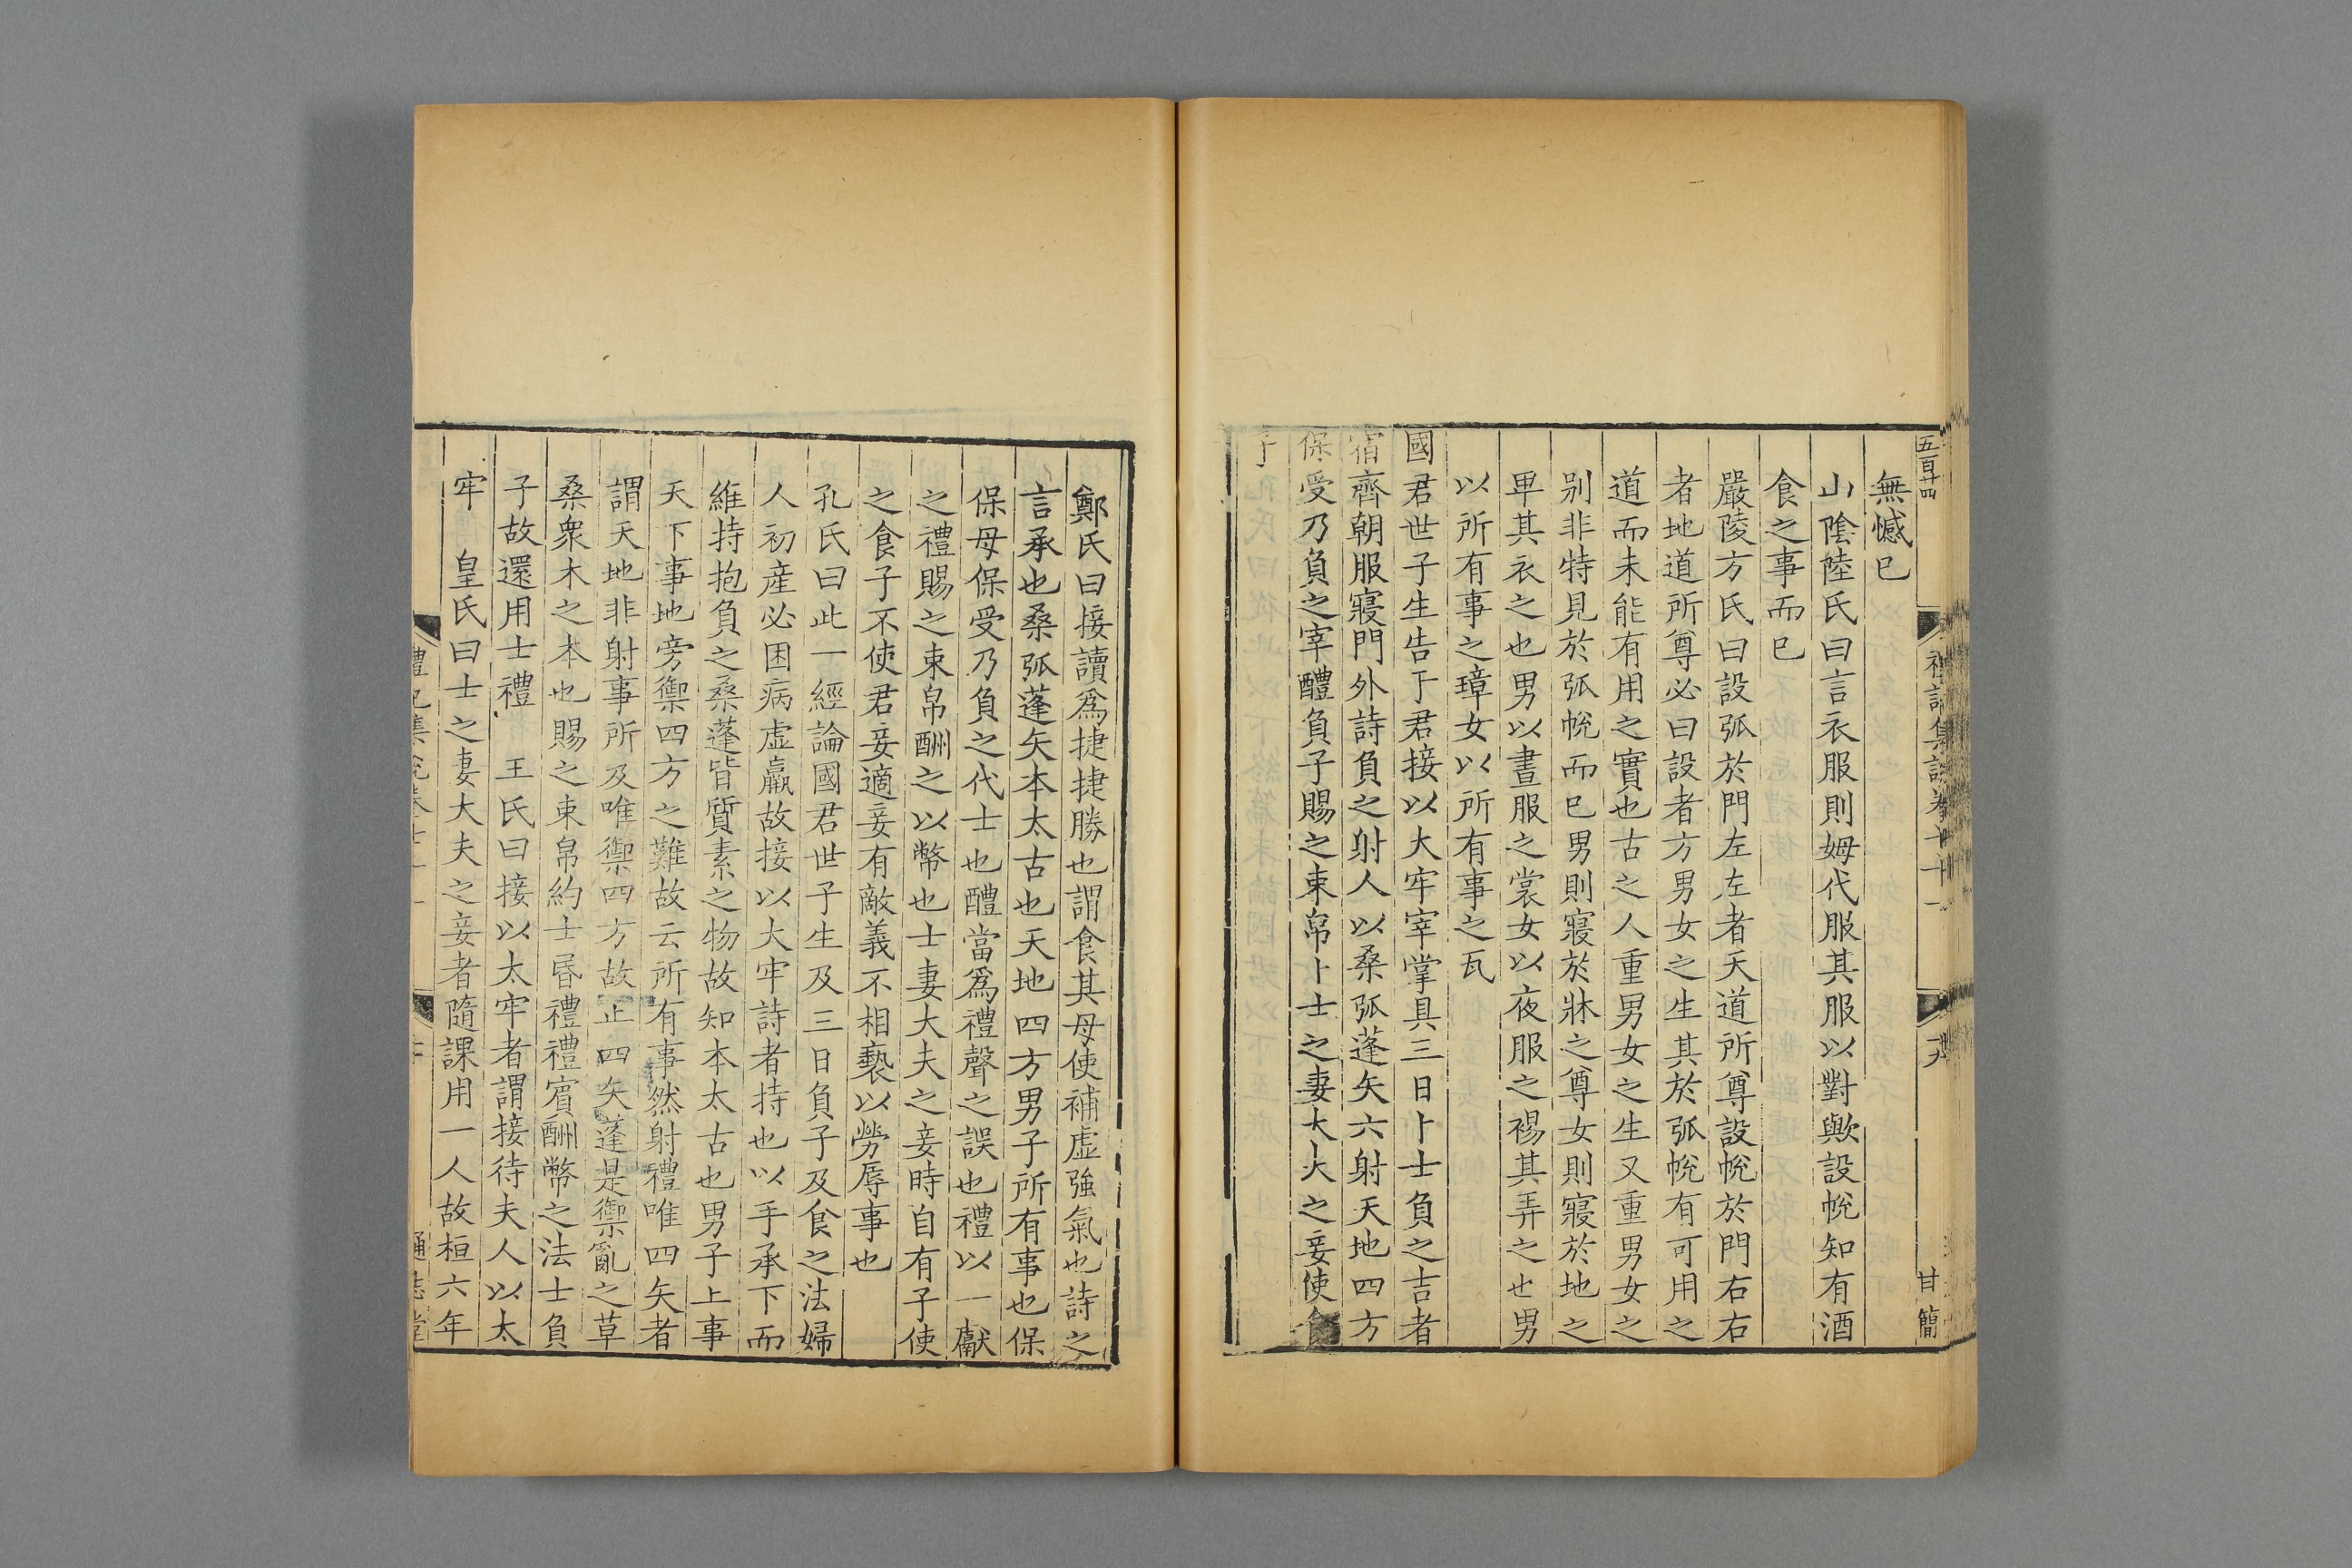 五百廿四
甘簡
無憾已
山陰陸氏曰言衣服則姆代服其服以對歟設帨知有酒
食之事而已
嚴陵方氏曰設弧於門左左者天道所尊設帨於門右右
者地道所尊必曰設者方男女之生其於弧帨有可用之
道而未能有用之實也古之人重男女之生又重男女之
别非特見於弧帨而已男則寢於牀之尊女則寢於地之
卑其衣之也男以晝服之裳女以夜服之裼其弄之也男
以所有事之璋女以所有事之瓦
國君世子生告于君接以大牢宰掌具三日卜士負之吉者
宿齊朝服寢門外詩負之射人以桑弧蓬矢六射天地四方
保受乃負之宰醴負子賜之束帛卜士之妻大夫之妾使食
子
鄭氏曰接讀爲捷捷勝也謂食其母使補虛強氣也詩之
言承也桑弧蓬矢本太古也天地四方男子所有事也保
保母保受乃負之代士也醴當爲禮聲之誤也禮以一獻
之禮賜之束帛酬之以幣也士妻大夫之妾時自有子使
之食子不使君妾適妾有敵義不相褻以勞辱事也
孔氏曰此一經論國君世子生及三日負子及食之法婦
人初產必困病虛羸故接以大牢詩者持也以手承下而
維持抱負之桑蓬皆質素之物故知本太古也男子上事
天下事地旁禦四方之難故云所有事然射禮唯四矢者
謂天地非射事所及唯禦四方故止四矢蓬是禦亂之草
桑衆木之本也賜之束帛約士昏禮禮賓酬幣之法士負
子故還用士禮 王氏曰接以太牢者謂接待夫人以太
牢 皇氏曰士之妻大夫之妾者隨課用一人故桓六年